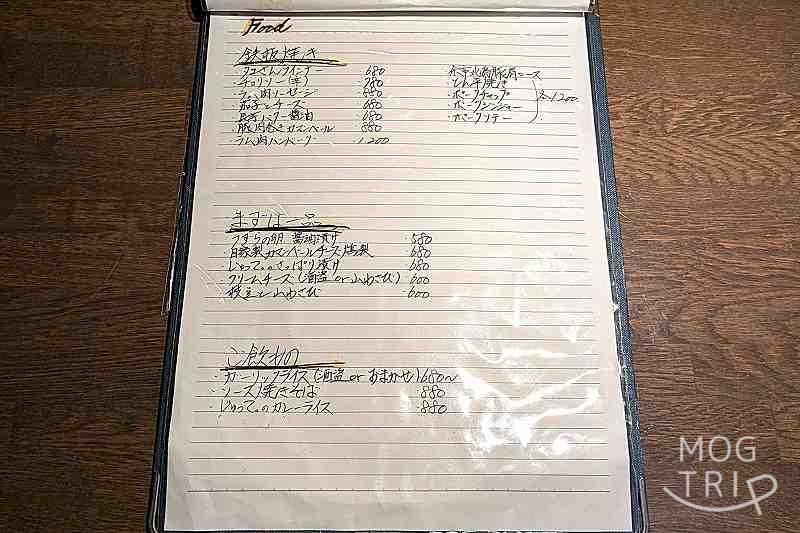 Food
鉄板焼き
・タコさんウインナー 680
・チョリソー(辛) 780
・ラム肉ソーセージ 880
・茄子とチーズ 680
・長芋バター醤油 680
・豚肉巻きカマンベール 880
・ラム肉ハンバーグ ・1,200
豚肩ロース
・とん平焼き
・ポークチャップ
・ポークジンジャー
・ポークソテー
各1,200
まずは一品
・うずらの卵 醤油漬け ・580
・自家製カマンベールチーズ燻製 680
・じゅってぃのさっぱり漬け ・680
・クリームチーズ(酒盗 or 山わさび) 600
・山わさび ・600
ご飲もの
・ガーリックライス(酒盗 or おまかせ) 680〜
・ソース焼きそば 880
・じゅってぃのカレーライス ・880
MOG
TRIP